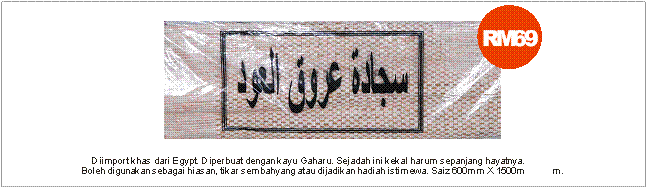 RM69
سجادة عروق العود
Diimport khas dari Egypt. Diperbuat dengan kayu Gaharu. Sejadah ini kekal harum sepanjang hayatnya.
Boleh digunakan sebagai hiasan, tikar sembahyang atau dijadikan hadiah istimewa. Saiz 600mm X 1500m m.